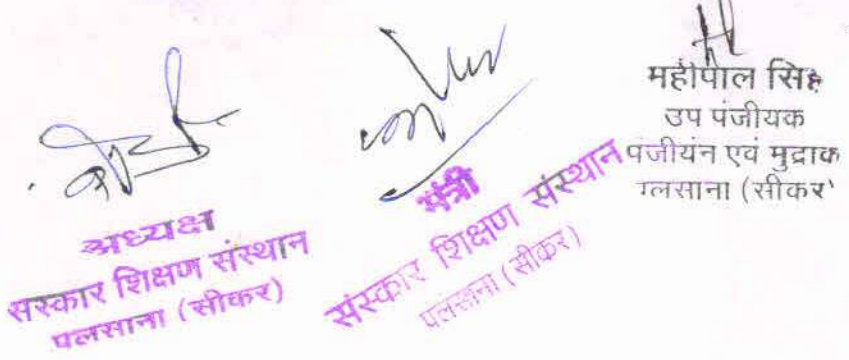 अध्यक्ष
सस्कार शिक्षण संस्थान
पलसाना (सीकर)
मंत्री
संस्कार शिक्षण संस्थान
पलसाना (सीकर)
महीपाल सिंह
उप पंजीयक
पंजीयन एवं मुद्राक
पलसाना (सीकर)